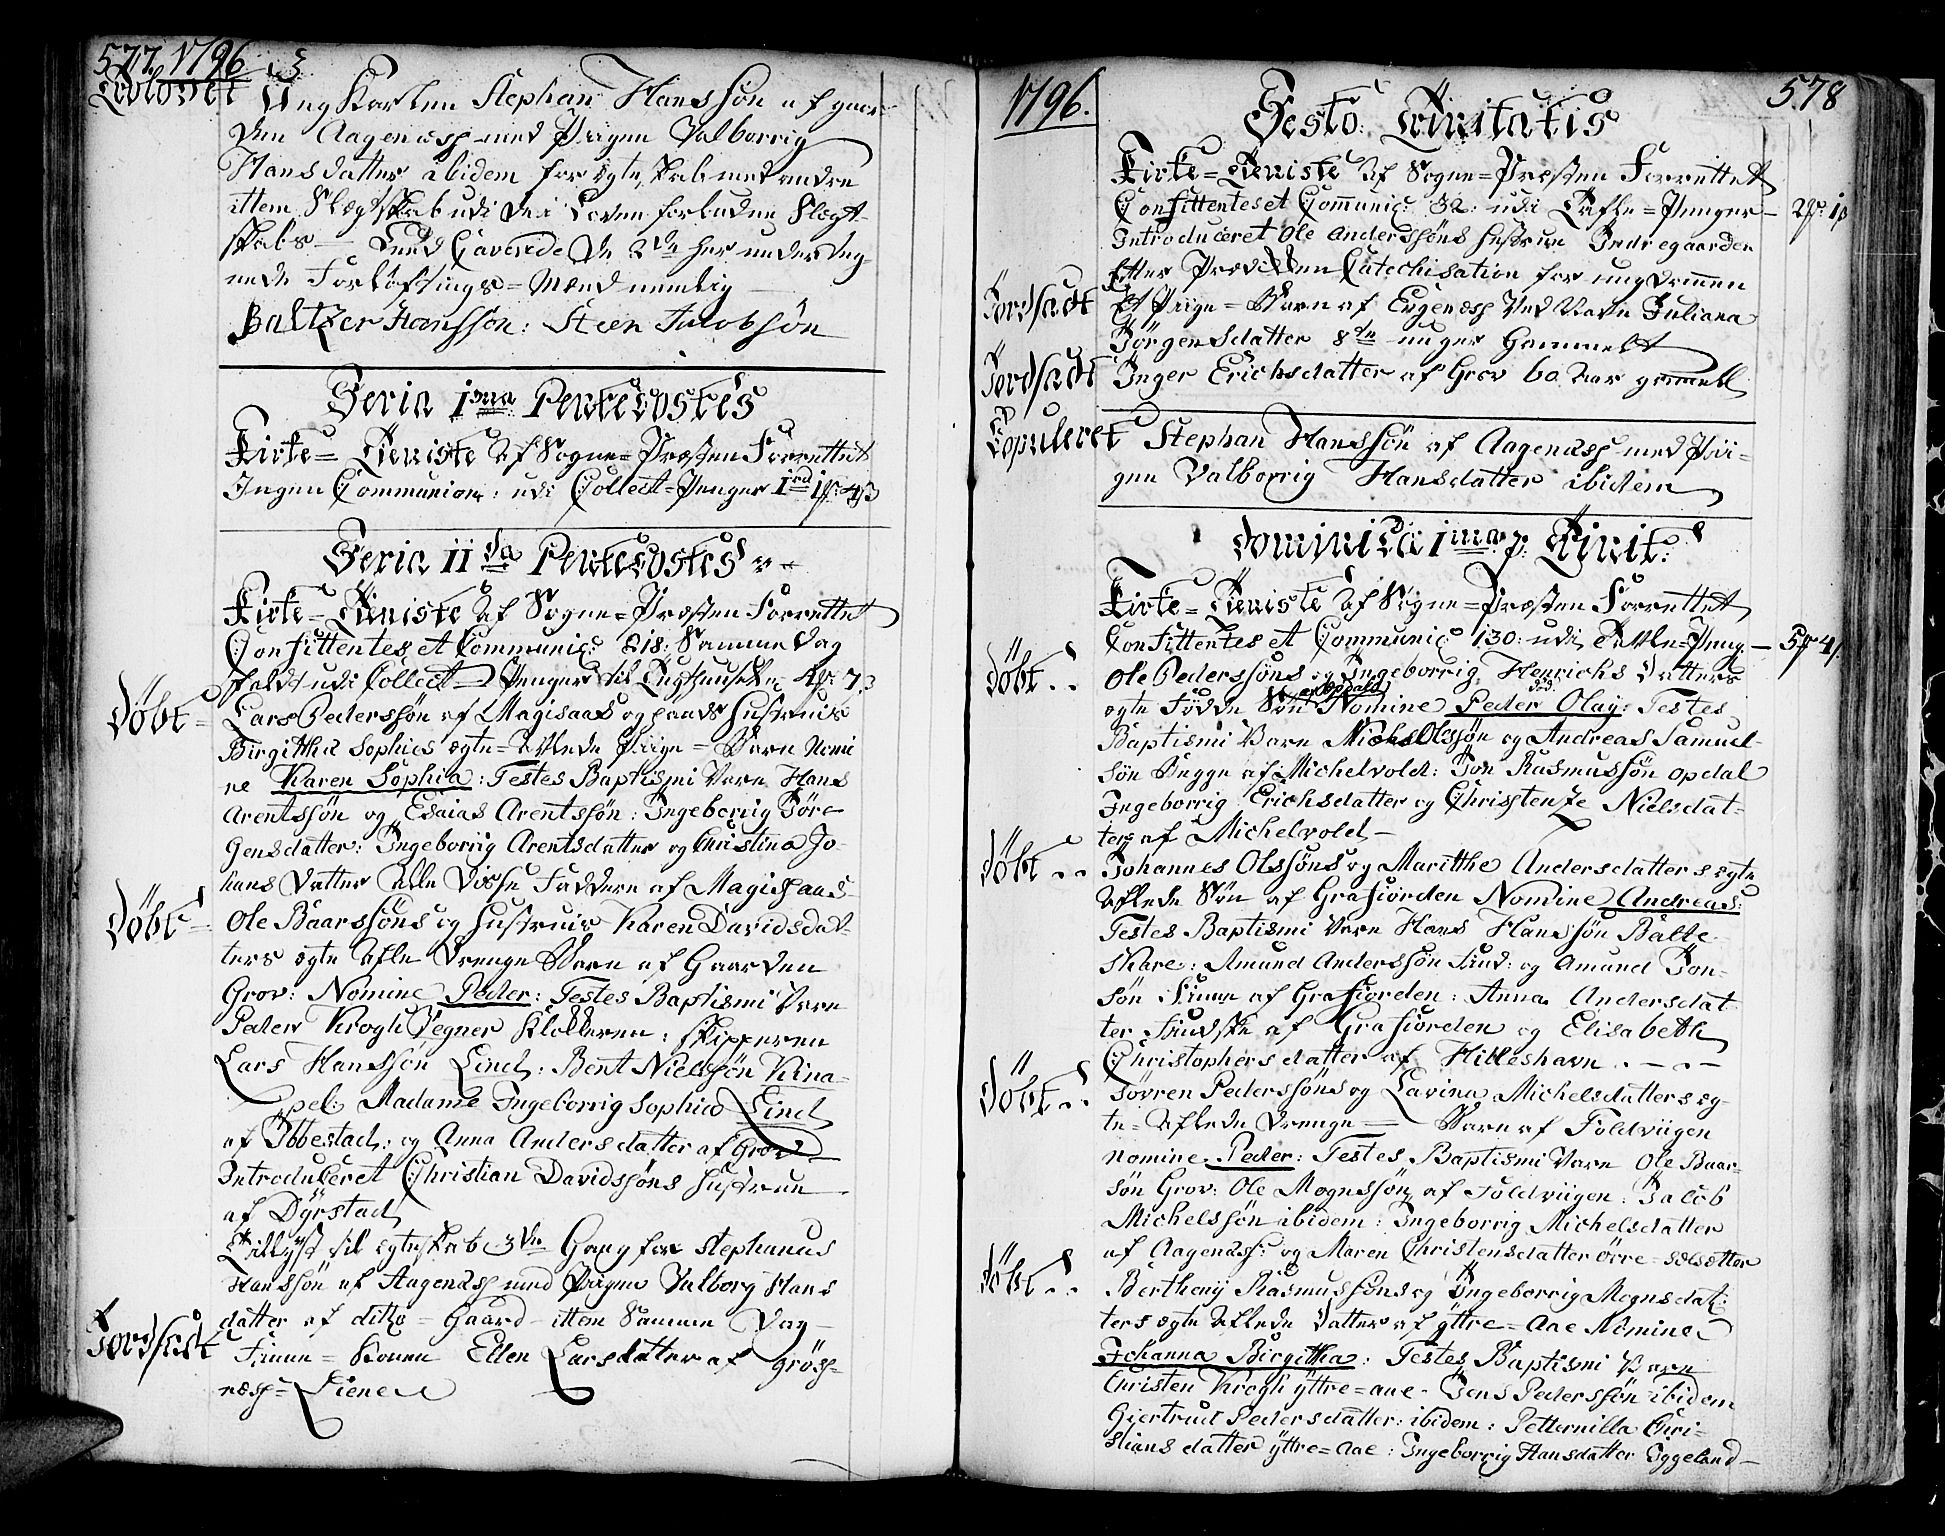 577. 1796
Trolovet Ung Karlen Stephan Hanssøn af gaar
den Aagenæss med Pigen Valborrig
Hansdatter ibidem for ægteskab med andre
ittem Slægtskab udi de i Loven forbudne Slægt-
skabs Leed Caverede de 2de her underteg-
nede Forløftnings=Mænd nemlig
Baltzer Hanssøn: Steen Jacobsøn
Feria 1ma Pentecostes
Kirke=Tieniste af Sogne=Præsten Forrettet
Ingen Communion: udi Collect=Penger 1rd 1# 4β
Feria IIda Pentecostes
Kirke=Tieniste af Sogne=Præsten Forrettet
Confittentes et Communic: 218: Samme dag
faldt udi Collect=Penger til Tugthuuset 4# 7β
Døbt= Lars Pederssøn af Magisaas og haads hustrues
Birgitha Sophies ægte=Aflede Piige=Barn Nomi
ne Karen Sophia: Testes Baptismi Vare Hans
Arentssøn og Esaias Arentssøn: Ingeborrig Jør-
gensdatter: Ingeborrig Arentsdatter og Christina Jo-
hans Datter alle disse Faddere af Magishaas
Døbt= Ole Baarssøns og hustrues Karen Davidsdat-
ters ægte Afle Drenge Barn af Gaarden
Grov: Nomine Peder: Testes Baptismi Vare
Peder Krogh Vegner Klokkeren: Skipperen
Lars Hanssøn Lind: Bent Nielssøn Kina-
pel: Madame Ingeborrig Sophia Lind
af Ibbestad: og Anna Andersdatter af Grov
Introduceret Christian Davidssøns hustrue
af Dyrstad
Tillyst til ægteskab 3die Gang for Stephanus
Hanssøn af Aagenæss med Pigen Valborg Hans
datter af ditto=Gaard ittem Samme Dag
Jordfæstet Finne=Konen Ellen Larsdatter af Grøss-
næss=Liene
1796. 578
Festo Trinitatis
Kirke=Tieniste af Sogne=Præsten Forrettet
Confittentes et Communic: 32: udi Tafle=Penger 2#: 1β
Introduceret Ole Anderssøns hustrue Indregaarden
Efter Prædiken Catechisation for ungdommen
Jordfæstet Et Piige=Barn af Engenæss Ved Navn Juliana
Jørgensdatter 8te uuger Gammelt
Jordfæstet Inger Erichsdatter af Grov 60 Aar gammell
Copuleret Stephan Hanssøn af Aagenæss med Pii-
gen Valborrig Hansdatter ibidem
Dominica 1ma p: Trinit:
Kirke=Tieniste af Sogne=Præsten Forrettet
Confittentes et Communic: 130: udi Tavle=Peng. 5# 4β
Døbt.. Ole Pederssøns og Ingeborrig Henrichs Datters
ægte Fødde Søn af Opdal Nomine Peder Olay: Testes
Baptismi Vare Michel Olssøn og Andreas Samuel-
søn Begge af Michelvold: Jon Rasmussøn Opdal
Ingeborrig Erichsdatter og Christenze Nielsdat-
ter af Michelvold
Døbt.. Johannes Olssøns og Maritthe Andersdatters ægte
Aflede Søn af Grafiorden Nomine Andreas:
Testes Baptismi Vare Hans Hanssøn Balte-
skare: Amund Anderssøn Sund: og Amund Jon-
søn Finne af Grafiorden: Anna Andersdat
ter Finske af Grafiorden og Elisabeth
Christophersdatter af Hilleshavn
Døbt.. Søvren Pederssøns og Lavina Michelsdatters æg-
te=Aflede Drenge=Barn af Foldviigen
Nomine Peder: Testes Baptismi Vare Ole Baar-
søn Grov: Ole Mognssøn af Foldviigen: Jacob
Michelssøn ibidem: Ingeborrig Michelsdatter
af Aagenæss: og Maren ChristensdatterØrre=Solsætter
Døbt.. Bertheny Rasmussøns og Ingeborrig Mognsdat:
ters ægte Aflede Datter af Yttre=Aae Nomine
Johanna Birgitha: Testes Baptismi Vare
Christen Krogh yttre=aae. Jens Pederssøn ibidem
Giertrud Pedersdatter: ibidem: Petternilla Chri-
stiansdatter yttre=aae: Ingeborrig Hansdatter Eggeland